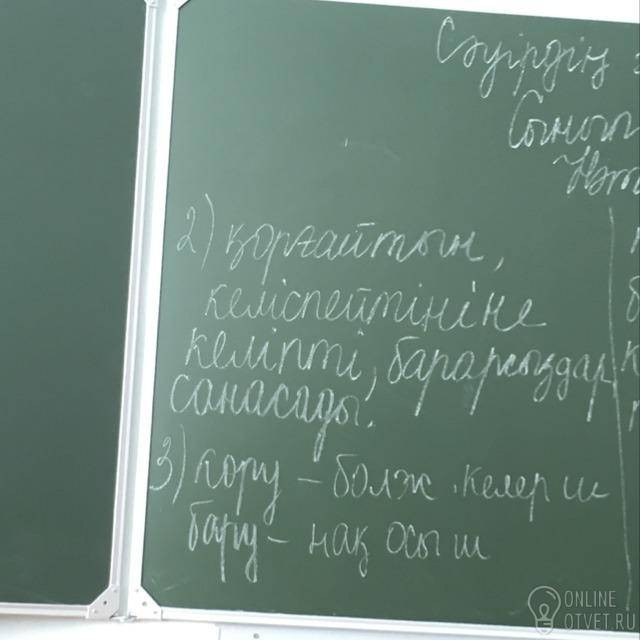 Сәуірдің
Сынып
2) қорғайтын,
келіспейтініне
келіпті, барарсыздар,
санасады.
3) көру – болж. келер ш
бару – нақ осы ш
ONLINE
OTVET.RU